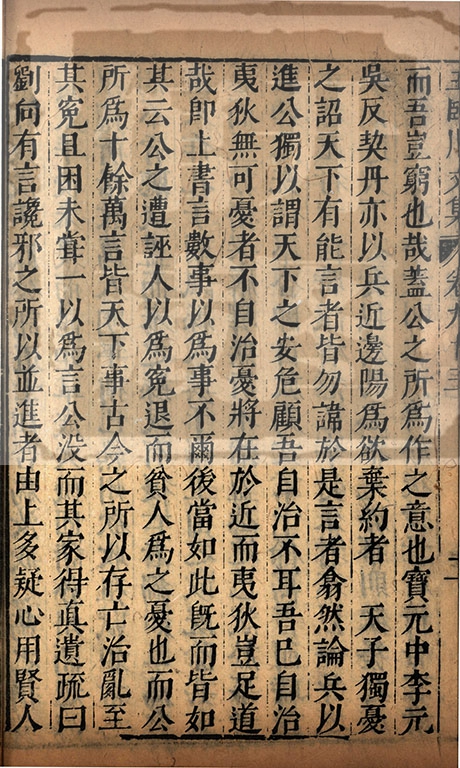 王臨川文集 卷九十三
而吾豈窮也哉蓋公之所爲作之意也寶元中李元
吳反契丹亦以兵近邊陽爲欲棄約者 天子獨憂
之詔天下有能言者皆勿諱於是言者翕然論兵以
進公獨以謂天下之安危顧吾自治不耳吾已自治
夷狄無可憂者不自治憂將在於近而夷狄豈足道
哉即上書言數事以爲事不爾後當如此既而皆如
其云公之遭誣人以爲冤退而貧人爲之憂也而公
所爲十餘萬言皆天下事古今之所以存亡治亂至
其冤且困未嘗一以爲言公没而其家得直遺疏曰
劉向有言讒邪之所以並進者由上多疑心用賢人